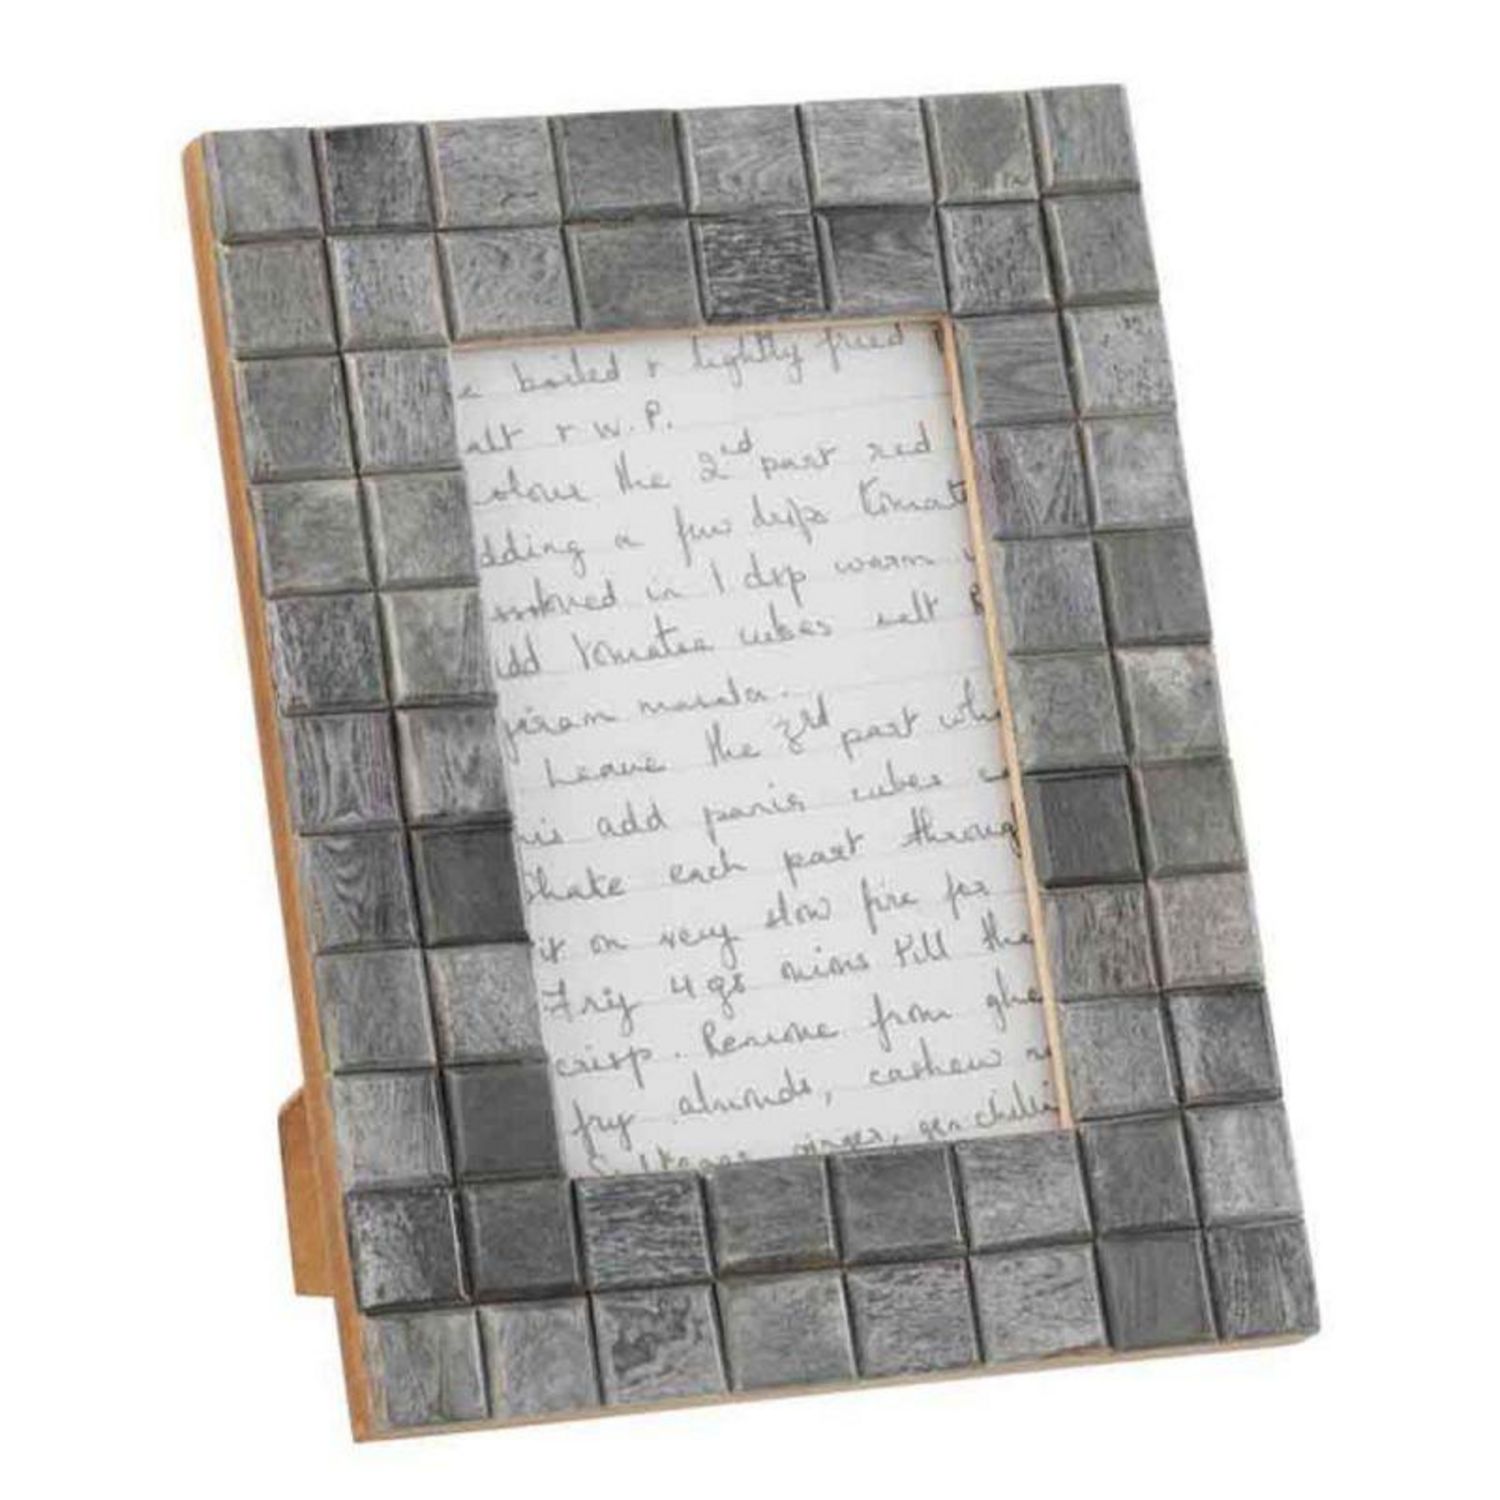 e boiled & lightly fried
alt & W.P.
olour the 2nd part red
dding a few drps tomat
ssolved in 1 drp warm
dd tomatoe cubes salt &
jeeram masala.
Leave the 3rd part whi
his add panir cubes
Shake each part throug
it on very slow fire for
Fry 4 gs mins till the
crisp. Remove from ghe
fry almonds, cashew n
Sultanas ginger, gen chilli